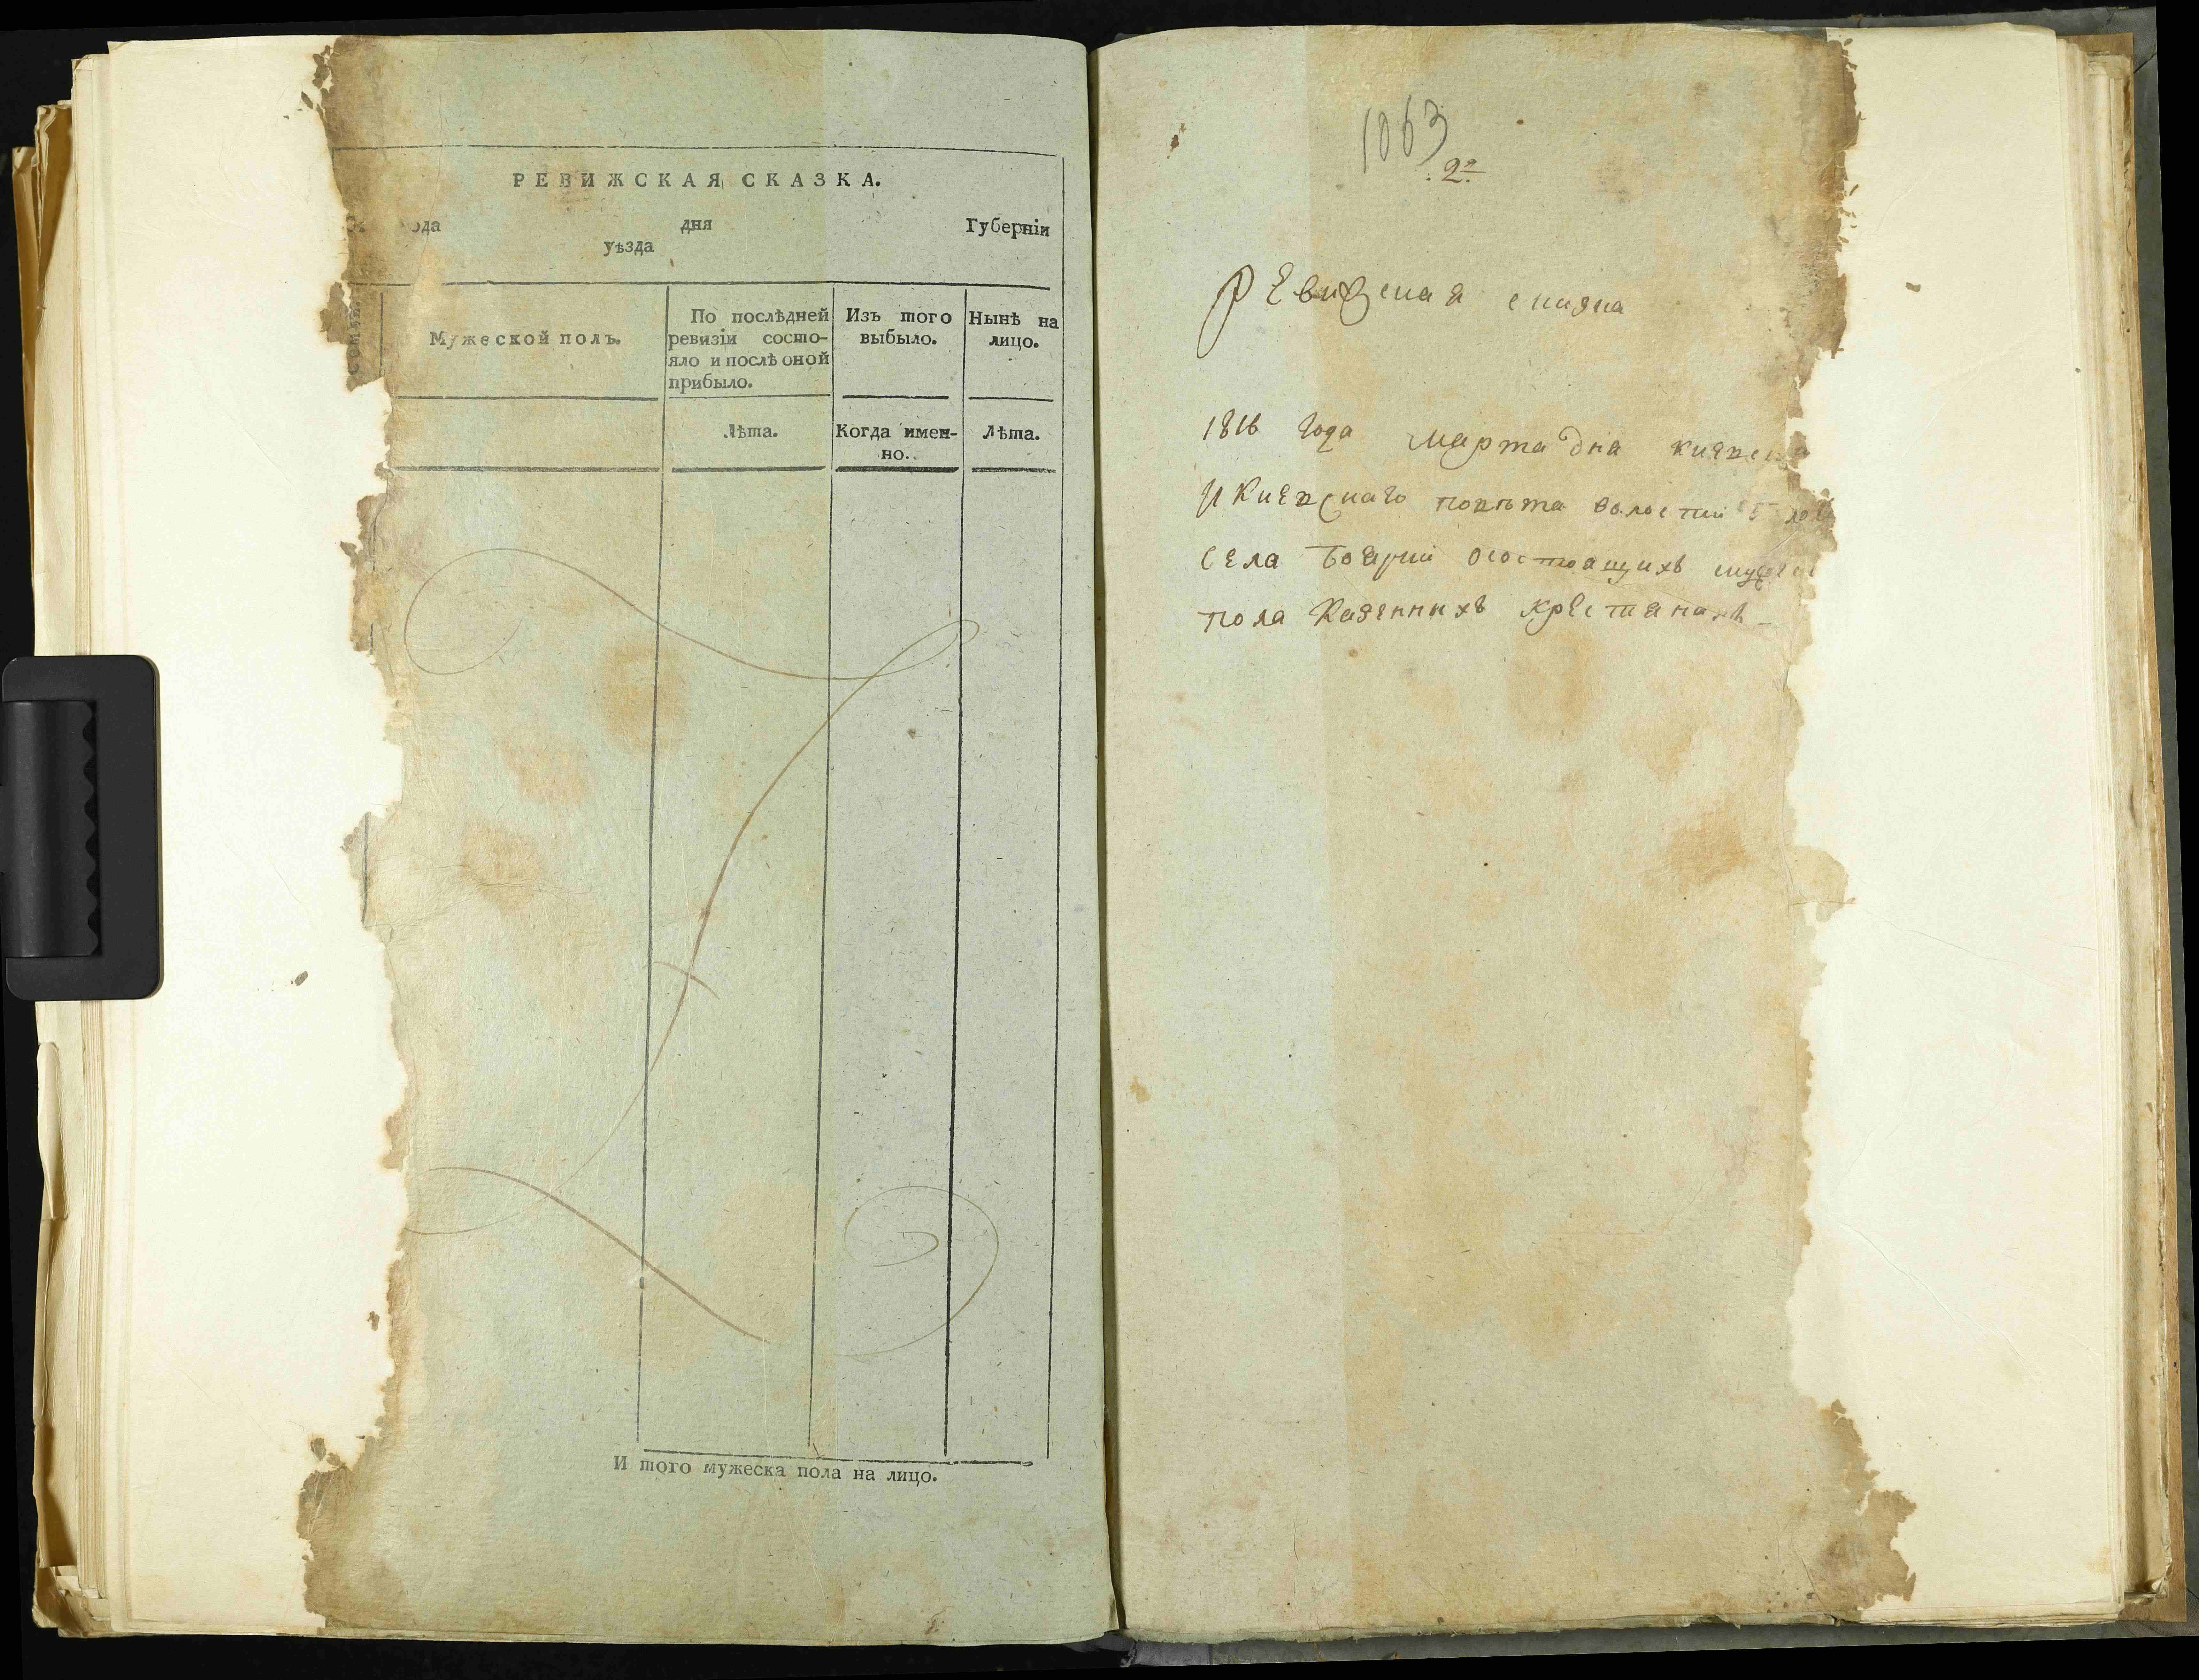 РЕВИЖСКАЯ СКАЗКА.
ода дня Губерніи
уѣзда
Мужеской полъ.
По послѣдней
ревизіи состо-
яло и послѣ оной
прибыло.
Изъ того
выбыло.
Нынѣ на
лицо.
Лѣта.
Когда имен-
но.
Лѣта.
И того мужеска пола на лицо.
1063
2º
Ревизская
1816 года марта дня
и Киевскаго повѣта волости
села Боярки осостоящихъ
пола Казенныхъ крестянахъ